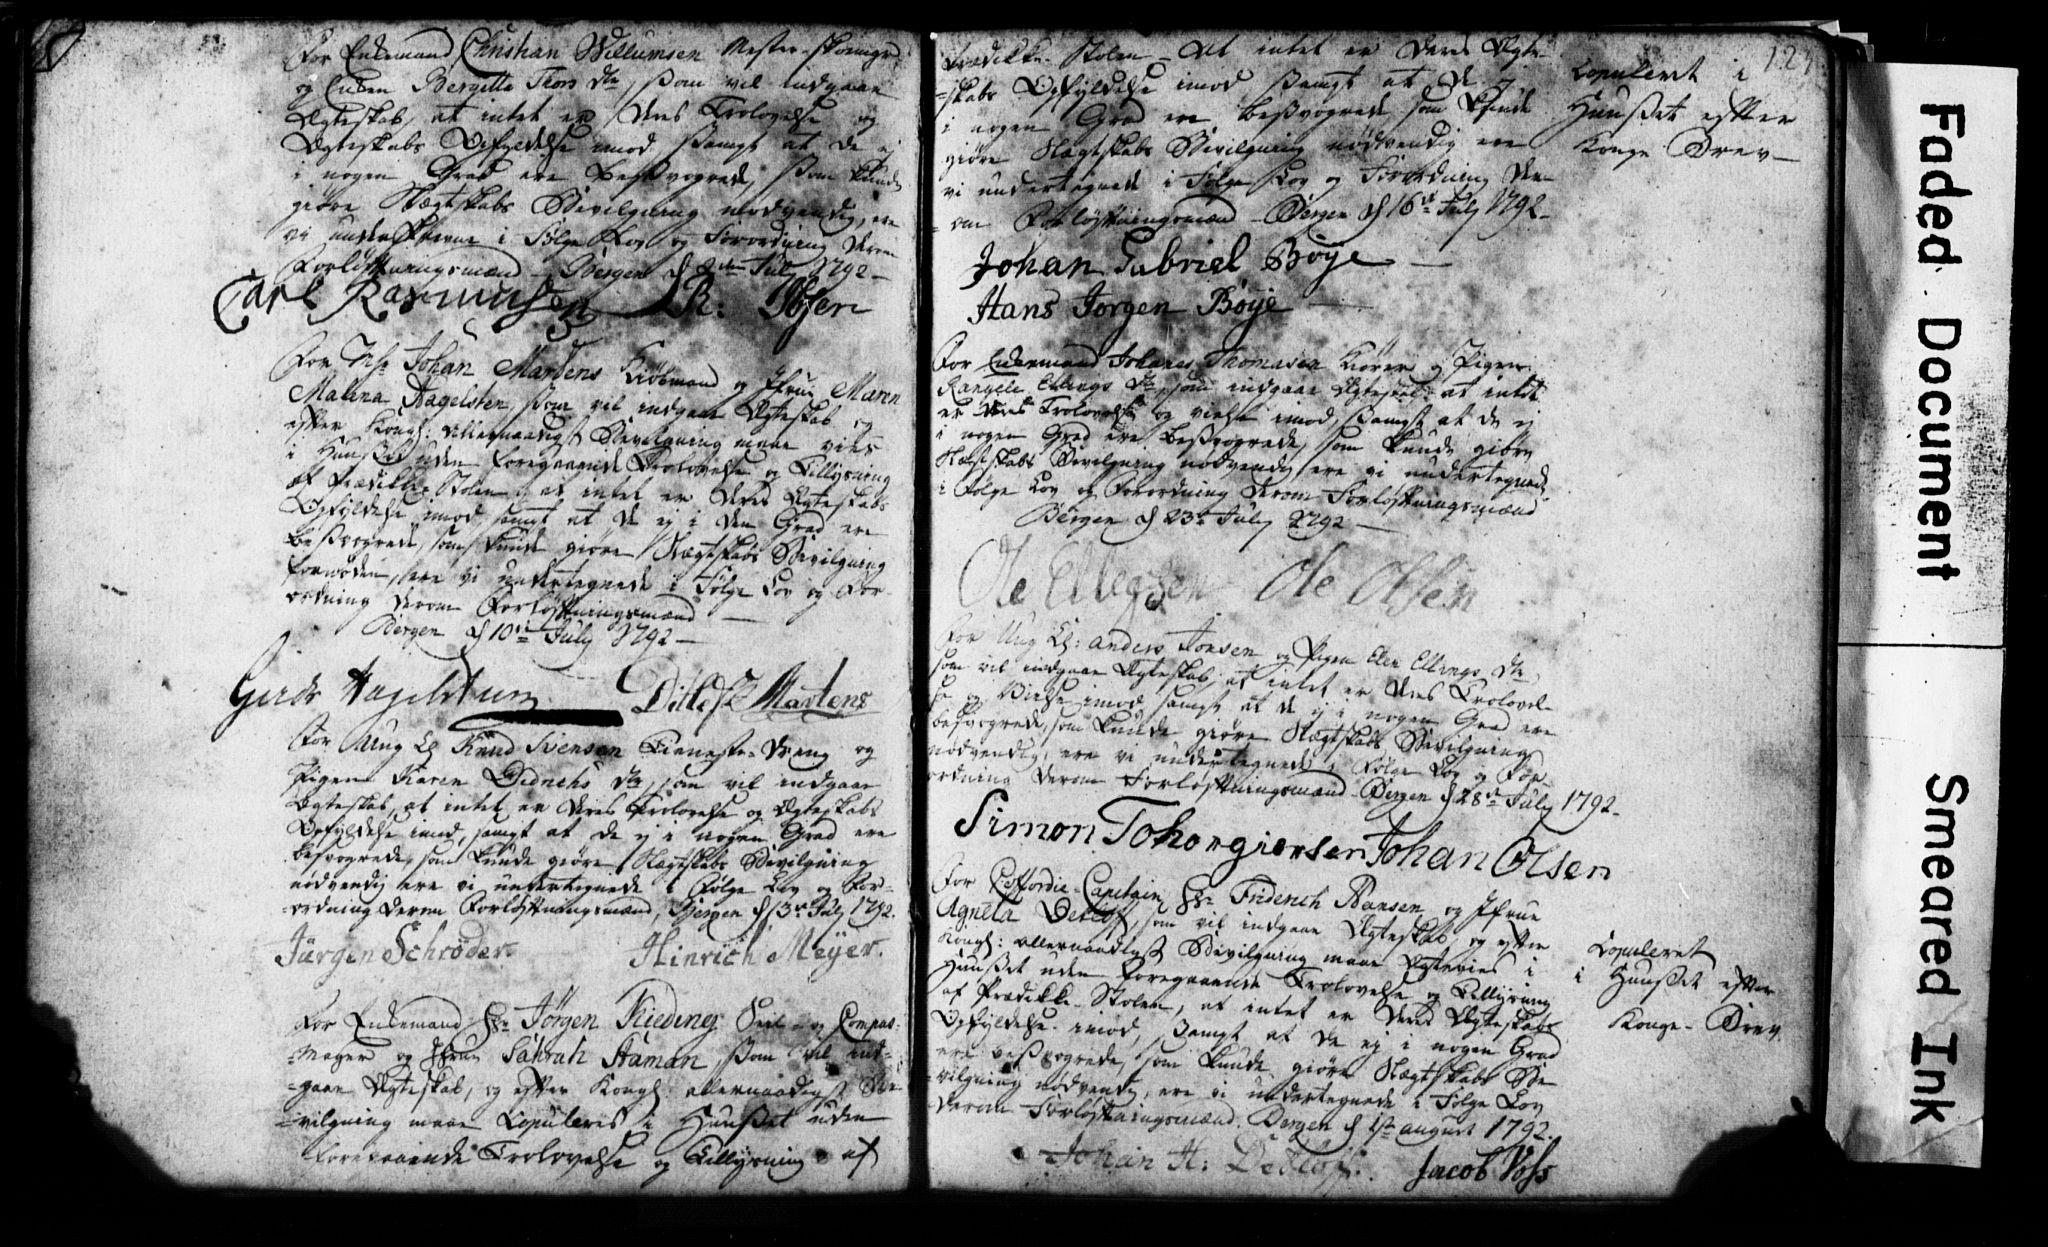 For Enkemand Christian Willumsen Mester-
og Enken Bergitte Thors Dtr, som vil indgaae
Ægteskab, at intet er deres Trolovelse og
Ægteskabs Opfyldelse imod, samt at de ej
i nogen Grad ere besvogrede, som kunde
giøre Slægtskabs Bevilgning nødvendig, ere
vi underskrevne i Følge Lov og Forordning derom
Forløftningsmænd – Bergen d 2den July 1792 –
Carl Rasmussen R: Ibsen
For Johan Martens Kiøbmand og Jfrue Maren
Malena Hagelsten, som vil indgaae Ægteskab og
efter Kongl: allernaadigst Bevilgning maae vies
i Huuset uden foregaaende Trolovelse og Tillysning
af Prædikke-Stolen, at intet er deres Ægteskabs
Opfyldelse imod, samt at de ej i den Grad ere
besvogrede, som kunde giøre Slægtskabs Bevilgning
fornøden, ere vi undertegnede i Følge Lov og For-
ordning derom Forløftningsmænd –
Bergen d 10de July 1792 –
Ditlef Martens
For Ung Kl Knud Svensen Tieneste-Dreng og
Pigen Karen Didrichs Dtr, som vil indgaae
Ægteskab, at intet er deres Trolovelse og Ægteskabs
Opfyldelse imod, samt at de ej i nogen Grad ere
besvogrede, som kunde giøre Slægtskabs Bevilgning
nødvendig ere vi undertegnede i Følge Lov og For-
ordning derom Forløftningsmænd, Bergen d 13de July 1792.
Jürgen Schrøder. Hinrich Meyer.
For Enkemand Hr Jørgen Rieding Seil- og Compas-
Mager og Jfrue Sahrah Haman, som vil ind-
gaae Ægteskab, og efter Kongl: allernaadigst Be-
vilgning maae Copuleres i Huuset uden
foregaaende Trolovelse og Tillysning af
Prædikke-Stolen – at intet er deres Ægte-
skabs Opfyldelse imod samt at de ej
i nogen Grad ere besvogrede som kunde
giøre Slægtskabs Bevilgning nødvendig ere
vi undertegnede i Følge Lov og Forordning der-
om Forløftningsmænd – Bergen d 16de July 1792 –
Copuleret i
Huuset efter
Konge-Brev –
Johan Gabriel Bøye –
Hans Jørgen Bøye
For Enkemand Johanes Thomasen Kiører og Pigen
Rangele Ellings Dtr, som indgaae Ægteskab at intet
er deres Trolovelse og vielse imod, samt at de ej
i nogen Grad ere besvogrede, som kunde giøre
Slægtskabs Bevilgning nødvendig ere vi undertegnede
i Følge Lov og Forordning derom Forløftningsmænd
Bergen d 23de July 1792 –
Ole Ellegsen Ole Olsen
For Ung Kl: Anders Jonsen og Pigen Elen Ellings Dtr,
som vil indgaae Ægteskab, at intet er deres Trolovel-
se og Vielse imod samt at de ej i nogen Grad ere
besvogrede, som kunde giøre Slægtskabs Bevilgning
nødvendig, ere vi undertegnede i Følge Lov og For-
ordning derom Forløftningsmænd – Bergen d 28de July 1792 –
Simon Johan Olsen
For Coffardie-Capitain Hr Friderich Hansen og Jfrue
Agneta Detlof, som vil indgaae Ægteskab og efter
Kongl: allernaadigst Bevilgning maae Ægtevies i
Huuset uden foregaaende Trolovelse og Tillysning
af Prædikke-Stolen, at intet er deres Ægteskabs
Opfyldelse imod, samt at de ej i nogen Grad
ere besvogrede, som kunde giøre Slægtskabs Be-
vilgning nødvendig, ere vi undertegnede i Følge Lov
derom Forløftningsmænd. Bergen d 1ste august 1792.
Copuleret
i Huuset efter
Konge-Brev.
Johan H: Detlof. Jacob Voss
Faded Document
Smeared Ink